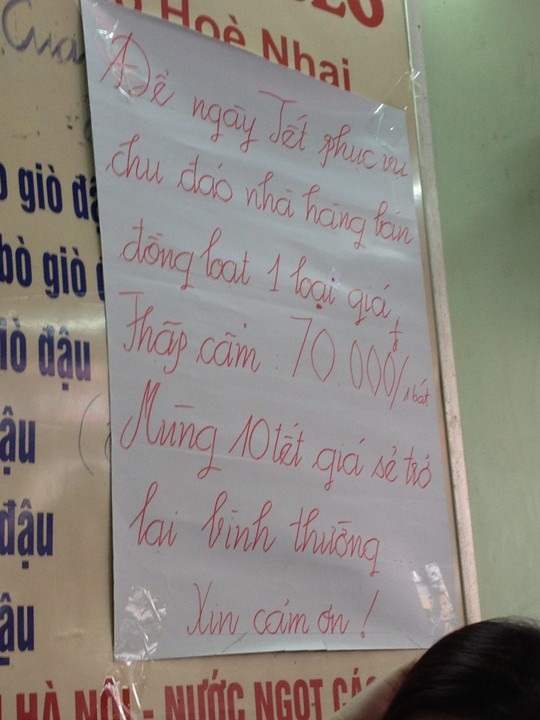 Hoè Nhai
Để ngày Tết phục vụ
chu đáo nhà hàng bán
đồng loạt 1 loại giá
Thập cẩm : 70.000đ/1 bát
Mùng 10 tết giá sẽ trở
lại bình thường ...
Xin cảm ơn !
giò đậ
bò giò
iò đậu
ậu
đậu
ậu
HÀ NỘI - NƯỚC NGỌT CÁC